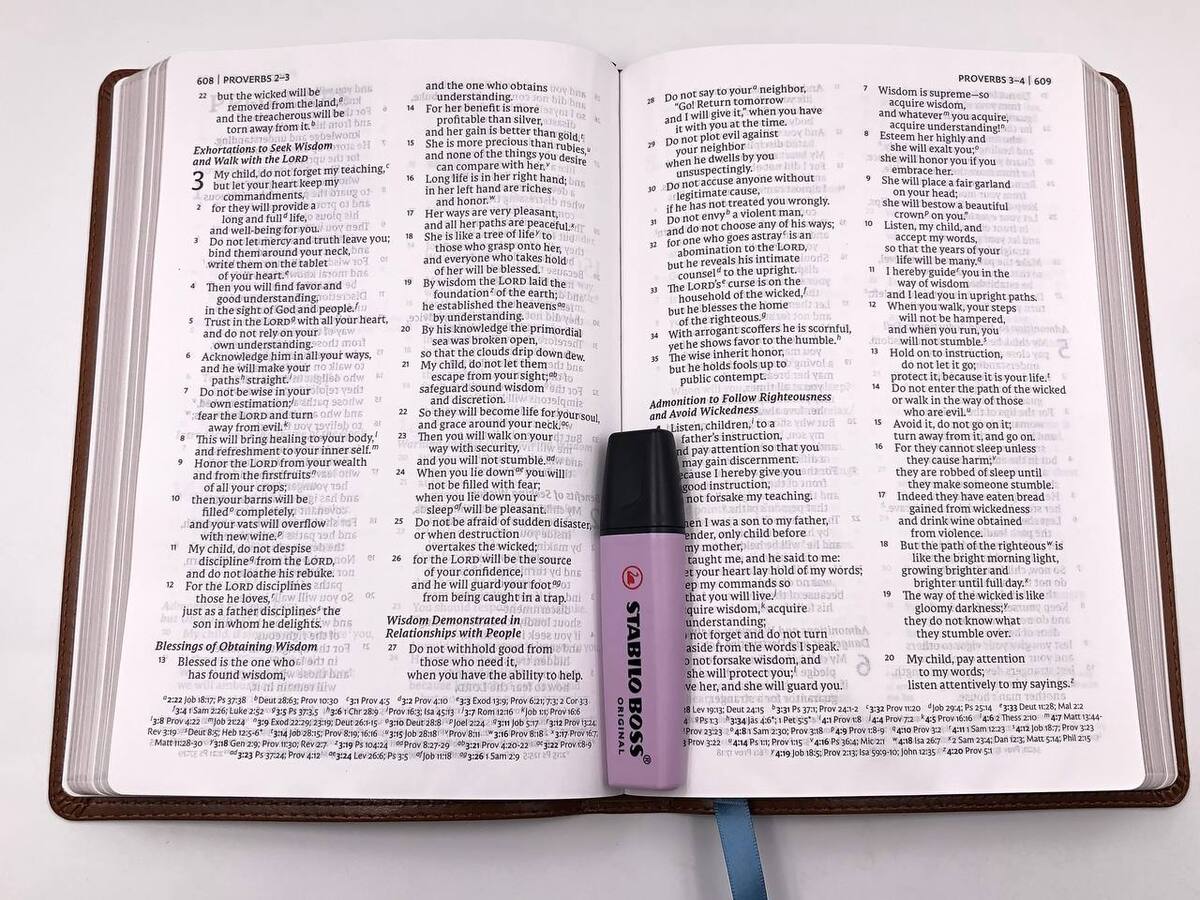 608 | PROVERBS 2–3
22 but the wicked will be
removed from the land,a
and the treacherous will be
torn away from it.b
Exhortations to Seek Wisdom
and Walk with the LORD
3 My child, do not forget my teaching,c
but let your heart keep my
commandments,
2 for they will provide a
long and fulld life,
and well-being for you.
3 Do not let mercy and truth leave you;
bind them around your neck,
write them on the tablet
of your heart.e
4 Then you will find favor and
good understanding,
in the sight of God and people.f
5 Trust in the LORDg with all your heart,
and do not rely on your
own understanding.
6 Acknowledge him in all your ways,
and he will make your
paths straight.
7 Do not be wise in your
own estimation;
fear the LORD and turn
away from evil.k
8 This will bring healing to your body,l
and refreshment to your inner self.m
9 Honor the LORD from your wealth
and from the firstfruitsn
of all your crops;
10 then your barns will be
filledo completely,
and your vats will overflow
with new wine.p
11 My child, do not despise
discipline from the LORD,
and do not loathe his rebuke.
12 For the LORD disciplines
those he loves,
just as a father disciplines the
son in whom he delights.
Blessings of Obtaining Wisdom
13 Blessed is the one who
has found wisdom,
and the one who obtains
understanding.
14 For her benefit is more
profitable than silver,
and her gain is better than gold.
15 She is more precious than rubies,u
and none of the things you desire
can compare with her.v
16 Long life is in her right hand;
in her left hand are riches
and honor.w
17 Her ways are very pleasant,
and all her paths are peaceful.x
18 She is like a tree of lifey to
those who grasp onto her,
and everyone who takes hold
of her will be blessed.
19 By wisdom the LORD laid the
foundationz of the earth;
he established the heavensaa
by understanding.
20 By his knowledge the primordial
sea was broken open,
so that the clouds drip down dew.
21 My child, do not let them
escape from your sight;ab
safeguard sound wisdom
and discretion.
22 So they will become life for your soul,
and grace around your neck.ac
23 Then you will walk on your
way with security,
and you will not stumble.ad
24 When you lie downae you will
not be filled with fear;
when you lie down your
sleepaf will be pleasant.
25 Do not be afraid of sudden disaster,
or when destruction
overtakes the wicked;
26 for the LORD will be the source
of your confidence,
and he will guard your footag
from being caught in a trap.
Wisdom Demonstrated in
Relationships with People
27 Do not withhold good from
those who need it,
when you have the ability to help.
a2:22 Job 18:17; Ps 37:38 b Deut 28:63; Prov 10:30 c3:1 Prov 4:5 d3:2 Prov 4:10 e3:3 Exod 13:9; Prov 6:21; 7:3; 2 Cor 3:3
f3:4 1 Sam 2:26; Luke 2:52 g3:5 Ps 37:3,5 h3:6 1 Chr 28:9 Prov 16:3; Isa 45:13 j3:7 Rom 12:16 k Job 1:1; Prov 16:6
l3:8 Prov 4:22 m Job 21:24 n3:9 Exod 22:29; 23:19; Deut 26:1-15 o3:10 Deut 28:8 p Joel 2:24 3:11 Job 5:17 3:12 Prov 13:24,
Rev 3:19 Deut 8:5; Heb 12:5-6 3:14 Job 28:15; Prov 8:19; 16:16 u3:15 Job 28:18 v Prov 8:11 w3:16 Prov 8:18 x3:17 Prov 16:7,
Matt 11:28-30 y3:18 Gen 2:9; Prov 11:30; Rev 2:7 z3:19 Ps 104:24 aa Prov 8:27-29 ab3:21 Prov 4:20-21 ac3:22 Prov 1:8-9
ad3:23 Ps 37:24; Prov 4:12 3:24 Lev 26:6; Ps 3:5 af Job 11:18 ag3:26 1 Sam 2:9
PROVERBS 3–4 | 609
28 Do not say to your neighbor,
"Go! Return tomorrow
and I will give it," when you have
it with you at the time.
29 Do not plot evil against
your neighbor
when he dwells by you
unsuspectingly.
30 Do not accuse anyone without
legitimate cause,
if he has not treated you wrongly.
31 Do not envyb a violent man,
and do not choose any of his ways;
32 for one who goes astrayc is an
abomination to the LORD,
but he reveals his intimate
counseld to the upright.
33 The LORD'Se curse is on the
household of the wicked,f
but he blesses the home
of the righteous.g
34 With arrogant scoffers he is scornful,
yet he shows favor to the humble.h
35 The wise inherit honor,
but he holds fools up to
public contempt.
Admonition to Follow Righteousness
and Avoid Wickedness
Listen, children,i to a
father's instruction,
and pay attention so that you
may gain discernment.
ecause I hereby give you
good instruction;
not forsake my teaching.
en I was a son to my father,
ender, only child before
my mother,
taught me, and he said to me:
et your heart lay hold of my words;
ep my commands so
that you will live.j
quire wisdom,k acquire
understanding;
not forget and do not turn
aside from the words I speak.
not forsake wisdom, and
she will protect you;l
ve her, and she will guard you.
7 Wisdom is supreme—so
acquire wisdom,
and whateverm you acquire,
acquire understanding!n
8 Esteem her highly and
she will exalt you;o
she will honor you if you
embrace her.
9 She will place a fair garland
on your head;
she will bestow a beautiful
crownp on you."
10 Listen, my child, and
accept my words,
so that the years of your
life will be many.q
11 I hereby guider you in the
way of wisdom
and I lead you in upright paths.
12 When you walk, your steps
will not be hampered,
and when you run, you
will not stumble.s
13 Hold on to instruction,
do not let it go;
protect it, because it is your life.t
14 Do not enter the path of the wicked
or walk in the way of those
who are evil.u
15 Avoid it, do not go on it;
turn away from it, and go on.
16 For they cannot sleep unless
they cause harm;v
they are robbed of sleep until
they make someone stumble.
17 Indeed they have eaten bread
gained from wickedness
and drink wine obtained
from violence.
18 But the path of the righteousw is
like the bright morning light,
growing brighter and
brighter until full day.x
19 The way of the wicked is like
gloomy darkness;y
they do not know what
they stumble over.
20 My child, pay attention
to my words;
listen attentively to my sayings.z
8 Lev 19:13; Deut 24:15 b3:31 Ps 37:1; Prov 24:1-2 c3:32 Prov 11:20 d Job 29:4; Ps 25:14 e3:33 Deut 11:28; Mal 2:2
g Ps 1:3 h3:34 Jas 4:6*; 1 Pet 5:5* i4:1 Prov 1:8 j4:4 Prov 7:2 k4:5 Prov 16:16 l4:6 2 Thess 2:10 m4:7 Matt 13:44-
Prov 23:23 o4:8 1 Sam 2:30; Prov 3:18 p4:9 Prov 1:8-9 q4:10 Prov 3:2 r4:11 1 Sam 12:23 s4:12 Job 18:7; Prov 3:23
Prov 3:22 u4:14 Ps 1:1; Prov 1:15 v4:16 Ps 36:4; Mic 2:1 w4:18 Isa 26:7 x 2 Sam 23:4; Dan 12:3; Matt 5:14; Phil 2:15
y4:19 Job 18:5; Prov 2:13; Isa 59:9-10; John 12:35 z4:20 Prov 5:1
STABILO BOSS®
ORIGINAL